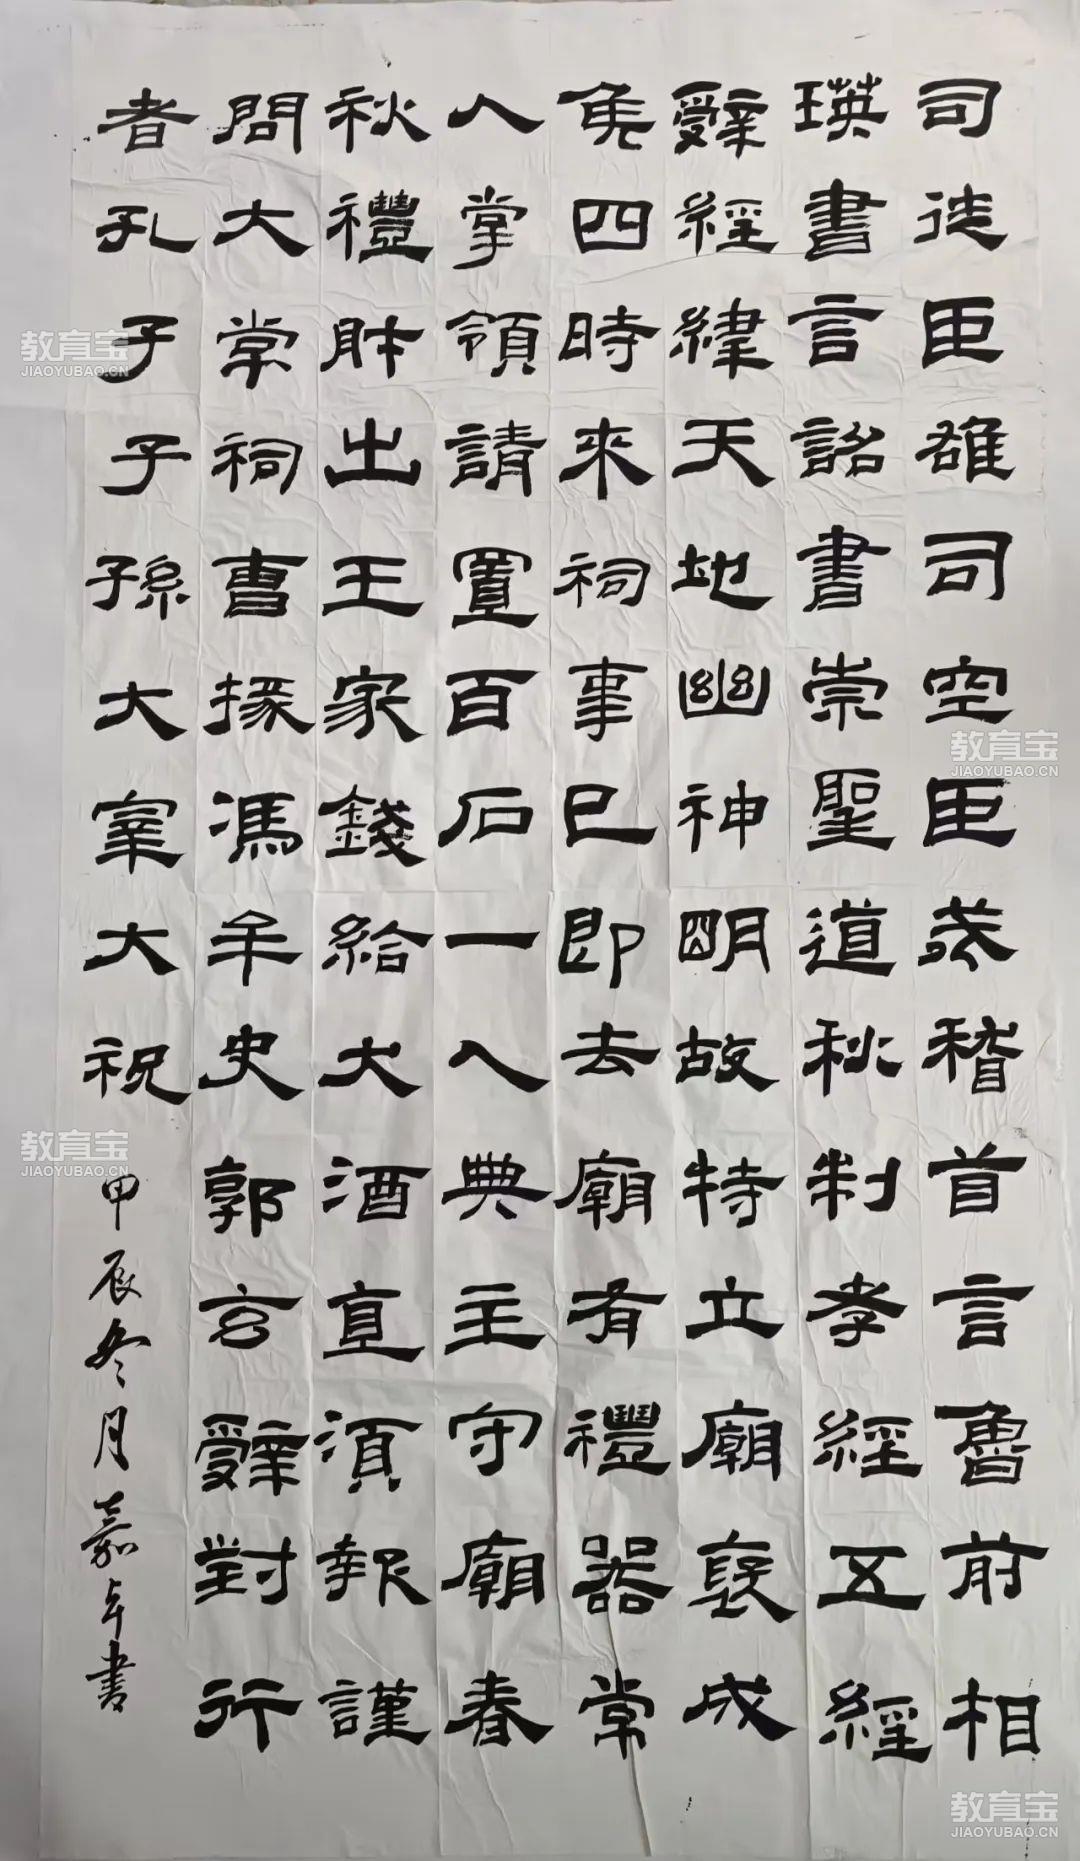 司徒臣雄司空臣戒稽首言魯前相
瑛書言詔書崇聖道秋制孝經五經
辭經緯天地幽神明故特立廟褒成
侯四時來祠事已即去廟有禮器常
人掌領請置百石一人典主守廟春
秋禮財出王家錢給犬酒直須報謹
問大常祠曹掾馮牟史郭玄辭對行
者孔子子孫大宰大祝
甲辰冬月嘉年書
教育宝
JIAOYUBAO.CN
教育宝
JIAOYUBAO.CN
教育宝
JIAOYUBAO.CN
教育宝
JIAOYUBAO.CN